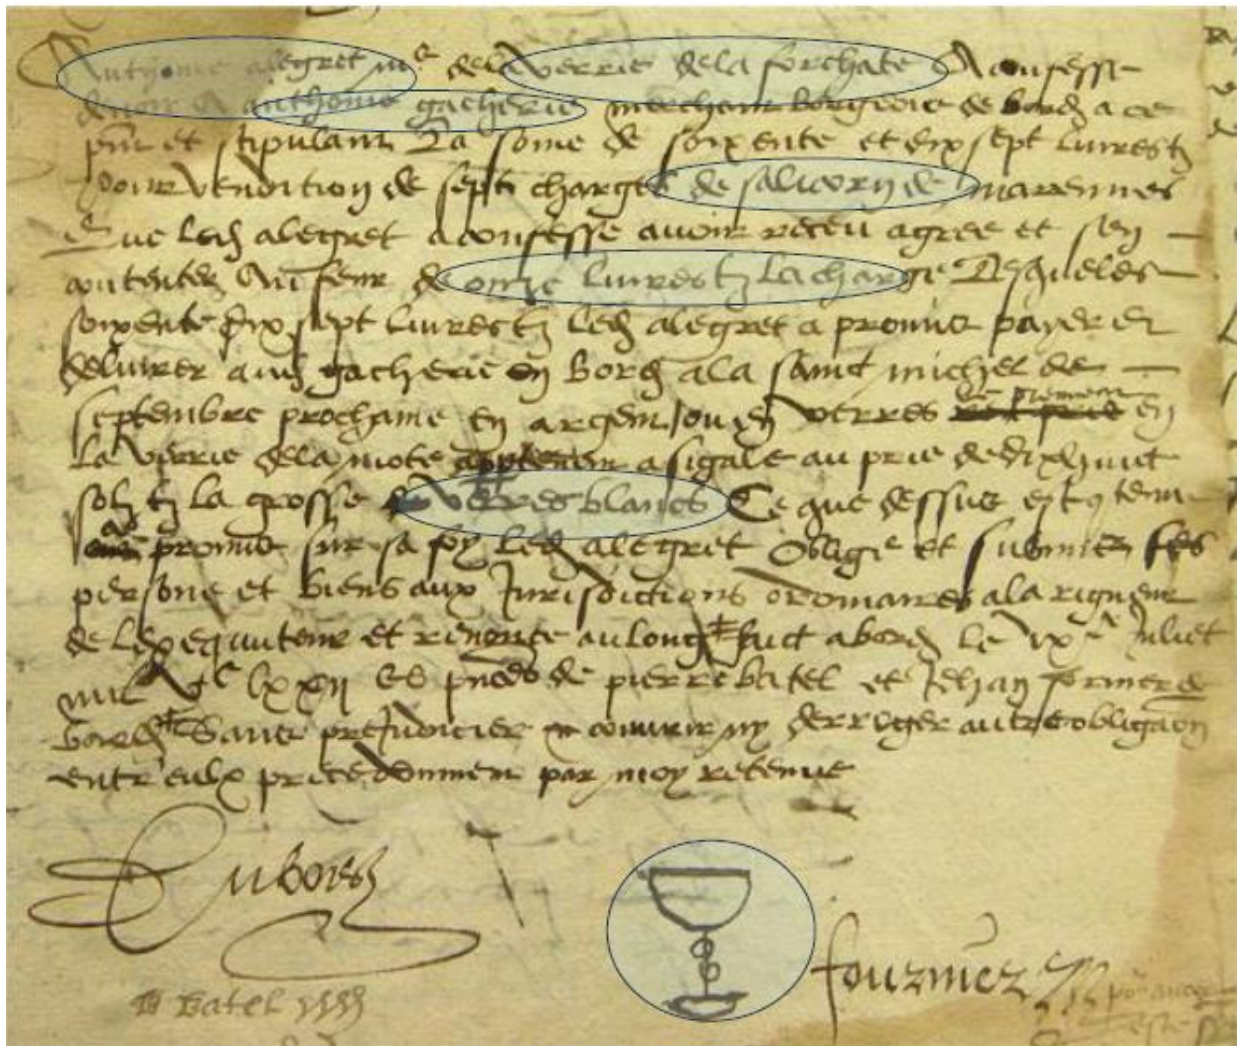 Anthoine alegret me dela verrie dela forchate A confesse
devoir A anthonie gacherie merchant borgeoie de bordx a ce
pnt et stipulant La some de soixente et dix sept livres tz
pour vendition de sept charges de salicorn de marennes
Que ledt alegret a confesse avoir receu agree et sen
contenter Au feur de onze livres tz la charge Desqueles
soixente dix sept livres tz ledt alegret a promis payer et
delivrer audt gacherie en Bordx ala sainct michel de
septembre prochaine en argent ou en verres en
La verrie dela mote a sigale au prie de dixhuict
solz tz la grosse verres blancs Ce que dessus est tenir
promis sur sa foy ledt alegret Oblige et submis ses
persone et biens aux Jurisdictions ordinaires ala rigueur
de lexequuteur et renonce au long faict a bordx le ixe Juliet
mil Vc lxxii Es pnces de pierre batel et Jehan fornier de
bordx Sans prejudicier ny derroger autre obligaon
entr'eulx precedemment par moy retenue
Dubosq
batel
fournier